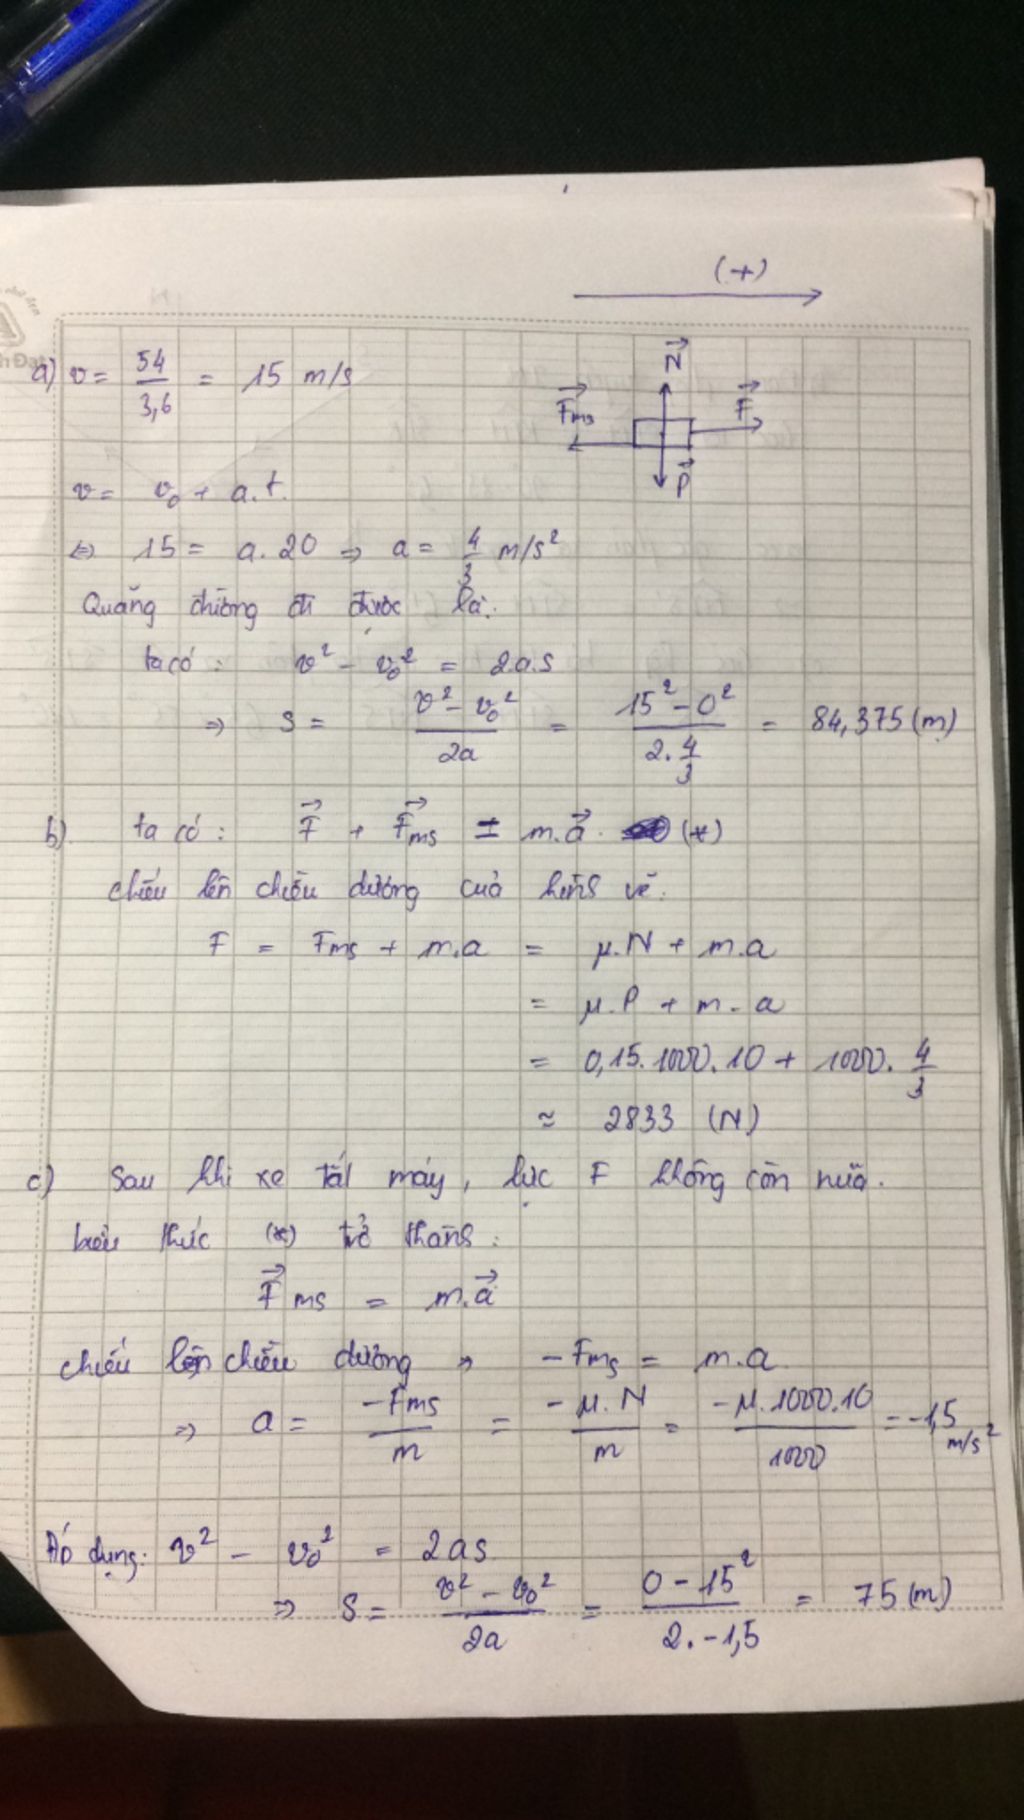 (+)
a) v = 54/3,6 = 15 m/s
N⃗
F⃗ms
F⃗
P⃗
v = v₀ + a.t.
⇔ 15 = a.20 ⇒ a = 4/3 m/s²
Quãng đường đi được là:
ta có: v² - v₀² = 2.a.s
⇒ s = (v² - v₀²)/2a = (15² - 0²)/(2.4/3) = 84,375 (m)
b) ta có: F⃗ + F⃗ms = m.a⃗. (*)
chiếu lên chiều dương của hình vẽ:
F = Fms + m.a = μ.N + m.a
= μ.P + m.a
= 0,15.1000.10 + 1000.4/3
≈ 2833 (N)
c) Sau khi xe tắt máy, lực F không còn nữa.
biểu thức (*) trở thành:
F⃗ms = m.a⃗
chiếu lên chiều dương ⇒ -Fms = m.a
⇒ a = -Fms/m = -μ.N/m = -μ.1000.10/1000 = -1,5 m/s²
Áp dụng: v² - v₀² = 2as
⇒ s = (v² - v₀²)/2a = (0 - 15²)/(2.-1,5) = 75 (m)